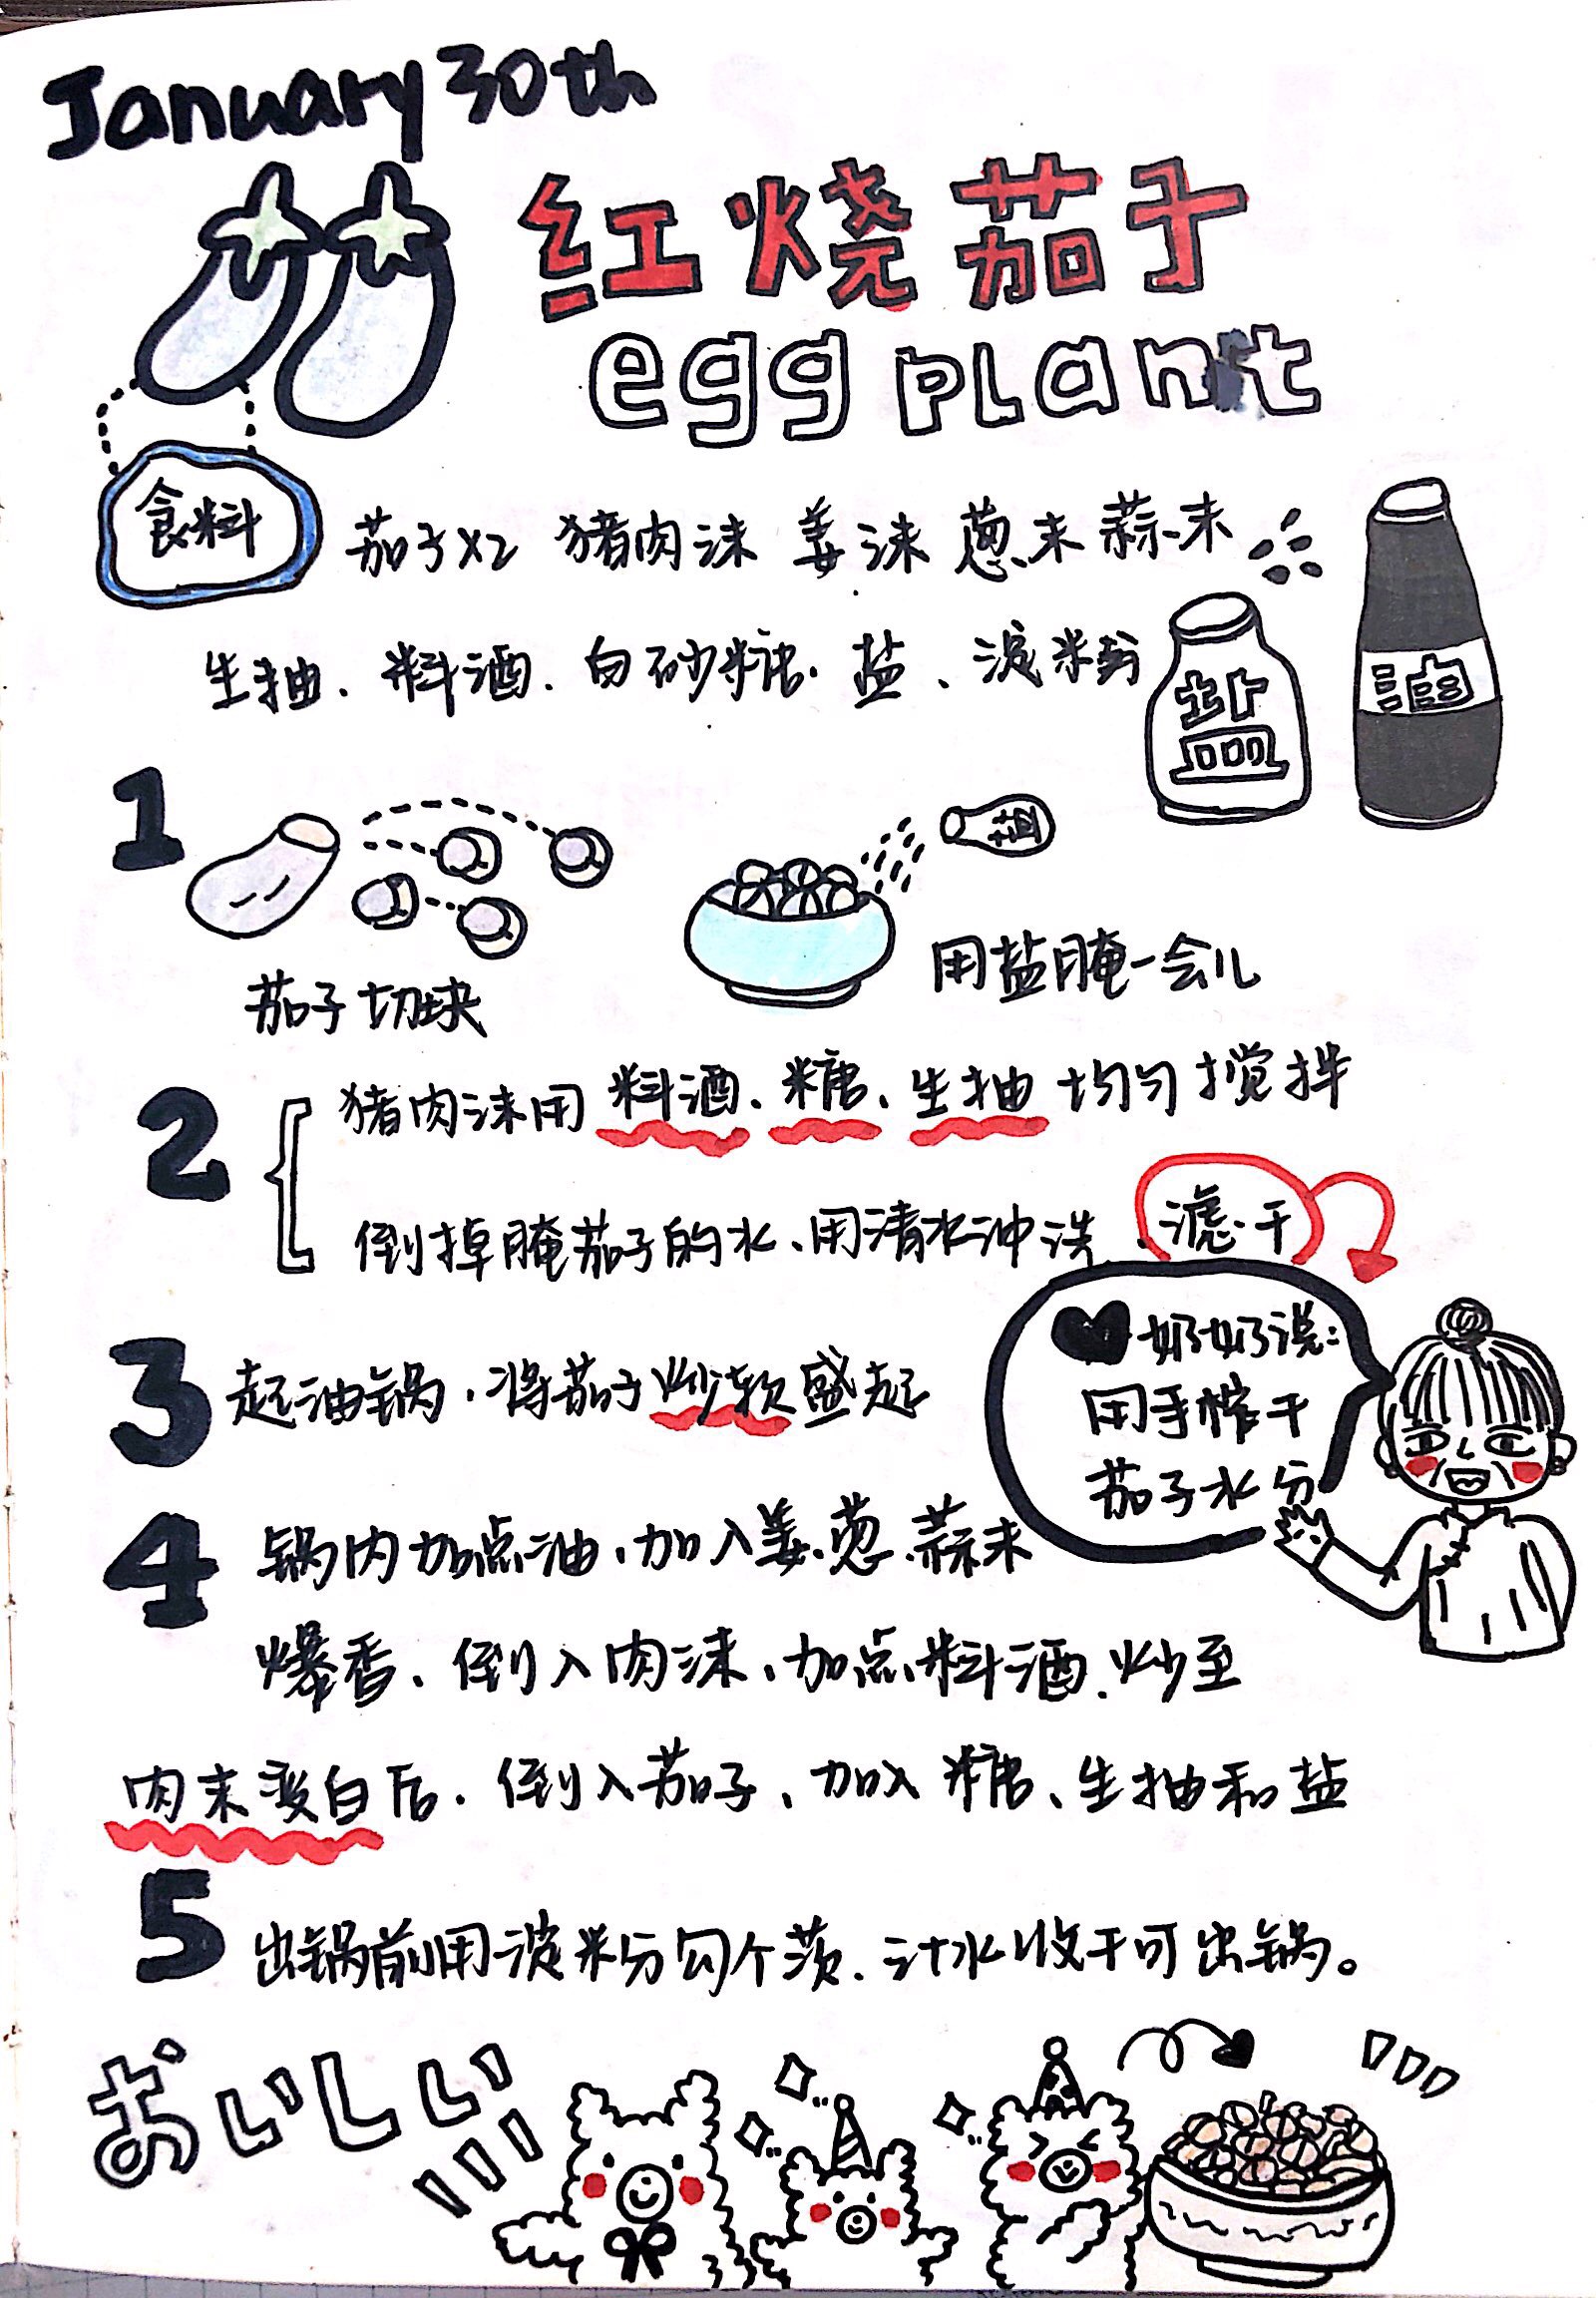 January 30th
红烧茄子
eggplant
食料
茄子x2 猪肉沫 姜沫 葱末 蒜末
生抽、料酒、白砂糖、盐、淀粉
盐
油
1
盐
茄子切块
用盐腌一会儿
2
猪肉沫用料酒、糖、生抽均匀搅拌
倒掉腌茄子的水、用清水冲洗、滤干
奶奶说:
用手榨干
茄子水分
3 起油锅、将茄子炒软盛起
4 锅内加点油、加入姜、葱、蒜末
爆香、倒入肉沫、加点料酒、炒至
肉末变白后、倒入茄子、加入糖、生抽和盐
5 出锅前用淀粉勾个茨、汁水收干可出锅。
おいしい